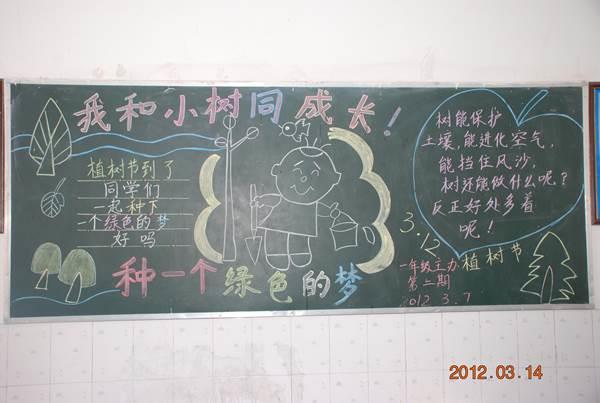 我和小树同成长！
植树节到了
同学们
一起种下
一个绿色的梦
好吗
种一个绿色的梦
树能保护
土壤，能进化空气，
能挡住风沙，
树还能做什么呢？
反正好处多着
呢！
3.12
植树节
一年级主办
第二期
2012.3.7
2012.03.14